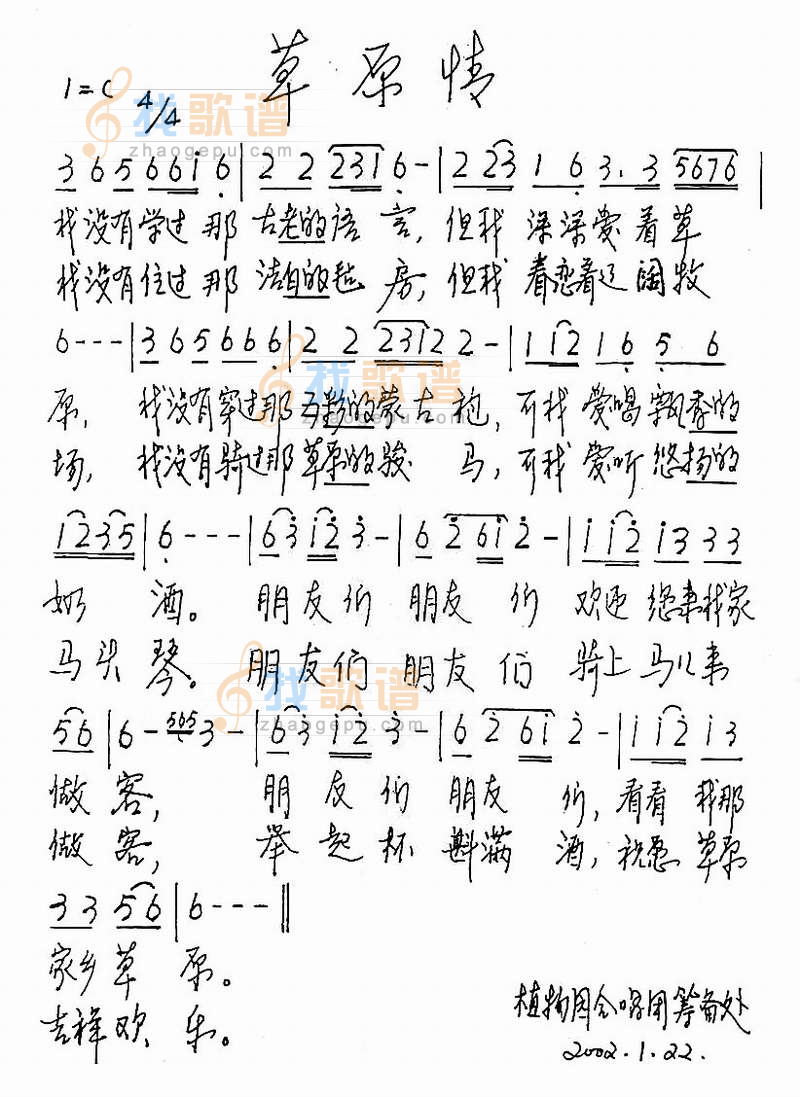 草原情
1=C 4/4
3 6 5 6 6 i 6 | 2 2 2 3 1 6 - | 2 2 3 1 6 3. 3 5 6 7 6 |
我没有学过那古老的语言,但我深深爱着草
我没有住过那洁白的毡房,但我眷恋着辽阔牧
6 - - - | 3 6 5 6 6 6 | 2 2 2 3 1 2 2 - | 1 1 2 1 6 5 6
原,我没有穿过那的蒙古袍,可我爱喝飘香的
场,我没有骑过那草原的骏马,可我爱听悠扬的
1 2 3 5 | 6 - - - | 6 3 i 2 3 - | 6 2 6 i 2 - | i i 2 i 3 3 3
奶酒。朋友们朋友们欢迎您来我家
马头琴。朋友们朋友们骑上马儿来
5 6 | 6 - 5 6 5 3 - | 6 3 i 2 3 - | 6 2 6 i 2 - | i i 2 i 3
做客,朋友们朋友们,看看我那
做客,举起杯斟满酒,祝愿草原
3 3 5 6 | 6 - - - ‖
家乡草原。
吉祥欢乐。
植物园合唱团筹备处
2002.1.22.
找歌谱
zhaogepu.com
找歌谱
zhaogepu.com
找歌谱
zhaogepu.com